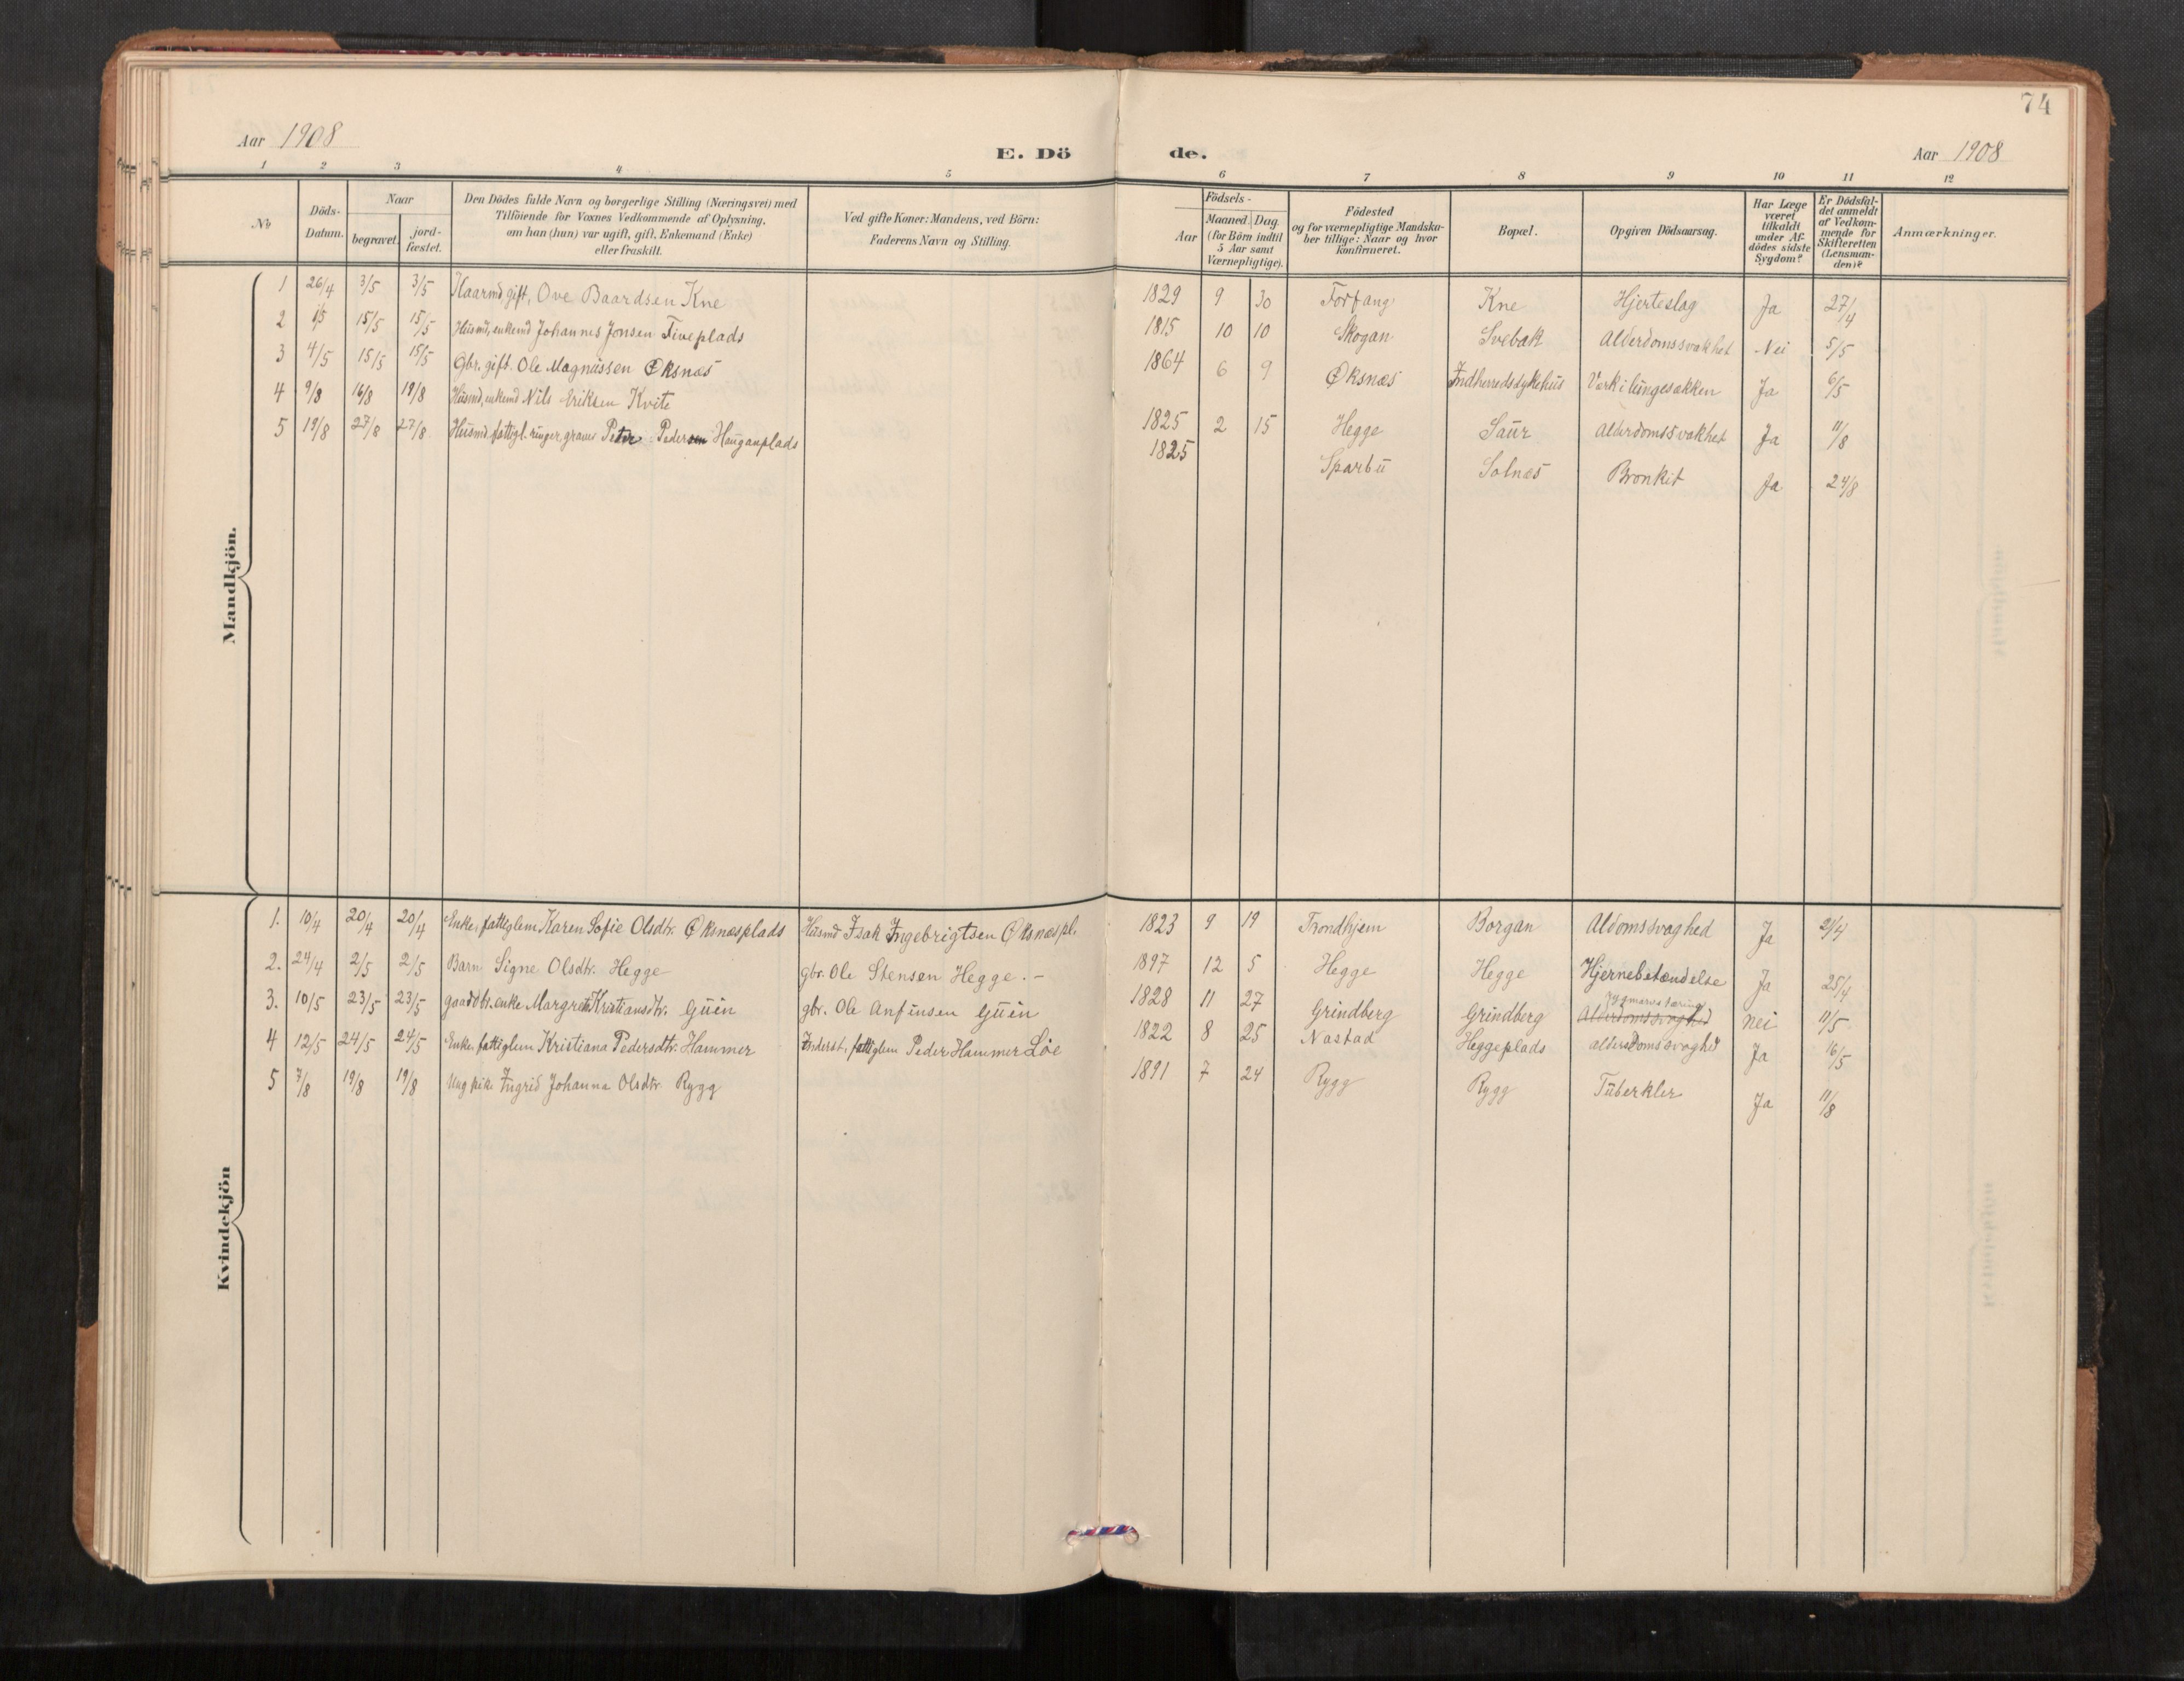 74
Aar 1908
E. Dö de.
Aar 1908
1 2 3 4 5 6 7 8 9 10 11 12
No
Döds-Datum.
Naar
begravet.
jord-fæstet.
Den Dödes fulde Navn og borgerlige Stilling (Næringsvei) med
Tilföiende for Voxnes Vedkommende af Oplysning,
om han (hun) var ugift, gift, Enkemand (Enke)
eller fraskilt.
Ved gifte Koner: Mandens, ved Börn:
Faderens Navn og Stilling.
Födsels-
Aar
Maaned. Dag
(for Börn indtil
5 Aar samt
Værnepligtige).
Födested
og for værnepligtige Mandska-
ber tillige: Naar og hvor
konfirmeret.
Bopæl.
Opgiven Dödsaarsag.
Har Læge
været
tilkaldt
under Af-
dödes sidste
Sygdom?
Er Dödsfal-
det anmeldt
af Vedkom-
mende for
Skifteretten
(Lensman-
den)?
Anmærkninger.
Mandkjön.
1 26/4 3/5 3/5 Kaarmd, gift, Ove Baardsen Kne 1829 9 30 Forfang Kne Hjerteslag Ja 27/4
2 1/5 15/5 15/5 Husmd, enkemd Johannes Jonsen Fiveplads 1815 10 10 Skogan Svebak Alderdomssvakhet Nei 5/5
3 4/5 15/5 15/5 Gbr. gift. Ole Magnussen Øksnæs 1864 6 9 Øksnæs Indherredssykehus Værk i lungesækken Ja 6/5
4 9/8 16/8 19/8 Husmd, enkemd Nils Eriksen Kvite 1825 2 15 Hegge Saur Alderdomssvakhet Ja 11/8
5 19/8 27/8 27/8 Husmd fattigl. ringer, graver Peder Pedersen Hauganplads 1825 Sparbu Solnæs Bronkit Ja 24/8
Kvindekjön
1. 10/4 20/4 20/4 Enke, fattiglem Karen Sofie Olsdtr. Øksnæsplads Husmd Isak Ingebrigtsen Øksnæspl. 1823 9 19 Trondhjem Borgan Aldomssvaghed Ja 21/4
2. 24/4 2/5 2/5 Barn Signe Olsdtr. Hegge gbr. Ole Stensen Hegge. - 1897 12 5 Hegge Hegge Hjernebetændelse Ja 25/4
3. 10/5 23/5 23/5 gaarddtr. enke Margrete Kristiansdtr. Guin gbr. Ole Anfinsen Guin 1828 11 27 Grindberg Grindberg Rygmarvstæring Alderdomssvaghed nei 11/5
4 12/5 24/5 24/5 Enke, fattiglem Kristiana Pedersdtr. Hammer Inderst, fattiglem Peder Hammer Løe 1822 8 25 Nastad Heggeplads alderdomssvaghed Ja 16/5
5 7/8 19/8 19/8 Ung pike Ingrid Johanna Olsdtr. Rygg 1891 7 24 Rygg Rygg Tuberkler Ja 11/8